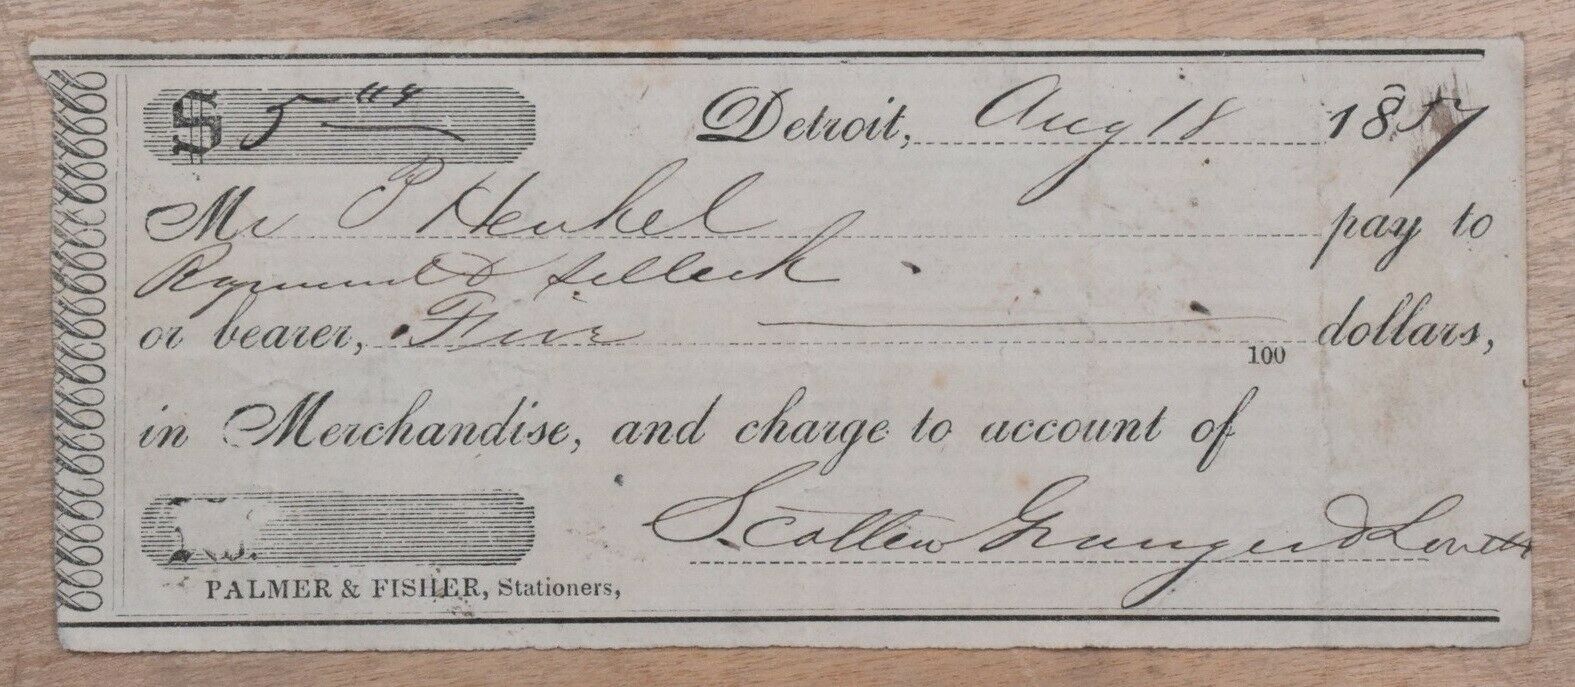 $ 5 00 Detroit, Aug 18 1857
Mr P Henkel pay to
Raymond & Selleck
or bearer, Five 100 dollars,
in Merchandise, and charge to account of
Scotten Granger & Lovett
PALMER & FISHER, Stationers,